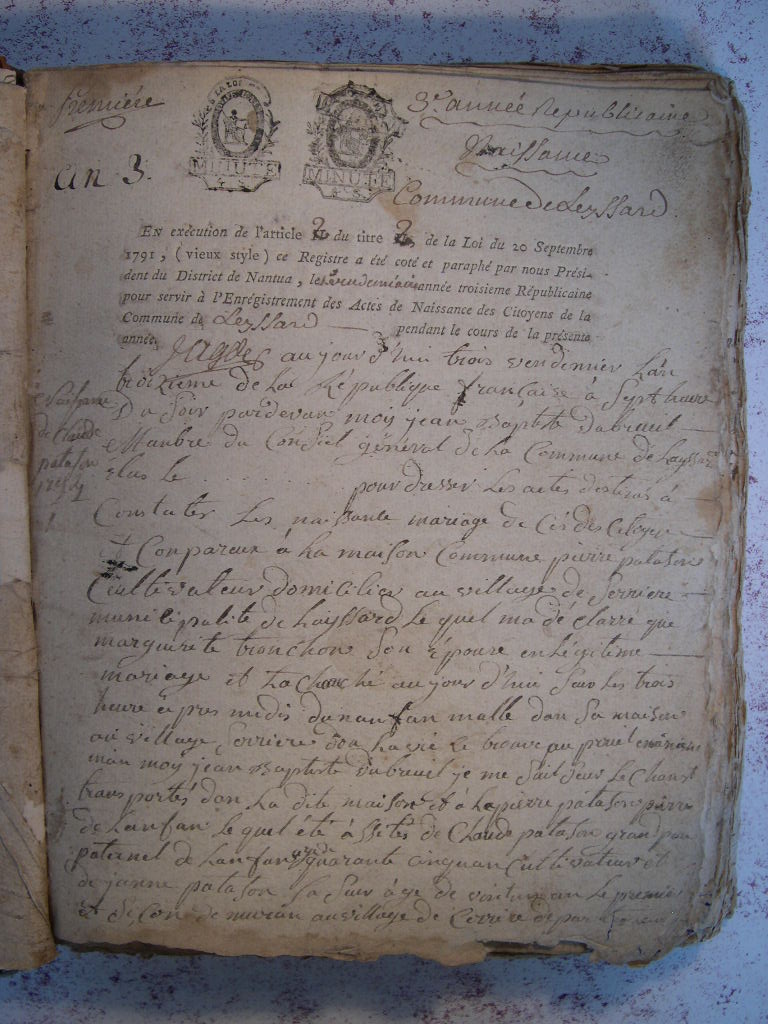 première
3e année Republicaine
LA LOI
MINUTE
4 S.
MINUTE
4 S.
Naissance
An 3.
Commune de Leyssard
EN exécution de l'article 2 du titre 2, de la Loi du 20 Septembre
1791, (vieux style) ce Registre a été coté et paraphé par nous Prési-
dent du District de Nantua, le vendemiaire année troisieme Républicaine
pour servir à l'Enrégistrement des Actes de Naissance des Citoyens de la
Commune de Leyssard pendant le cours de la présente
année.
Jagot
aujourd'hui trois vendemier l'an
troizieme de la République française à sept heure
Du soir pardevan moy jean Baptiste Dubreuil
Manbre du Conseil général de la Commune de Layssar
elus le pour dresser les actes destinés à
Constater les naissance mariage de Cés des Citoyen
et Conpareux à la maison Commune pierre patason
Cultivateur domicilier au village de Serriere
municipalité de Layssard le quel ma dé Clarré que
marguerite tronchon son épouse en légitime
mariage et tachouché aujourd'hui sur les trois
heure a pres midis dunanfan malle dan sa maison
au village Serriere
moy jean Baptiste Dubreuil je me suit sur le Chant
transportés dan la dite maison et à pierre patason pierre
de lanfan le quel été assités de Claude patason grand
paternel de lanfan quarante cinquan Cultivateur et
de janne patason sa sœur âgé de an le premier
au village de Cerriere
naissance
de Claude
patason